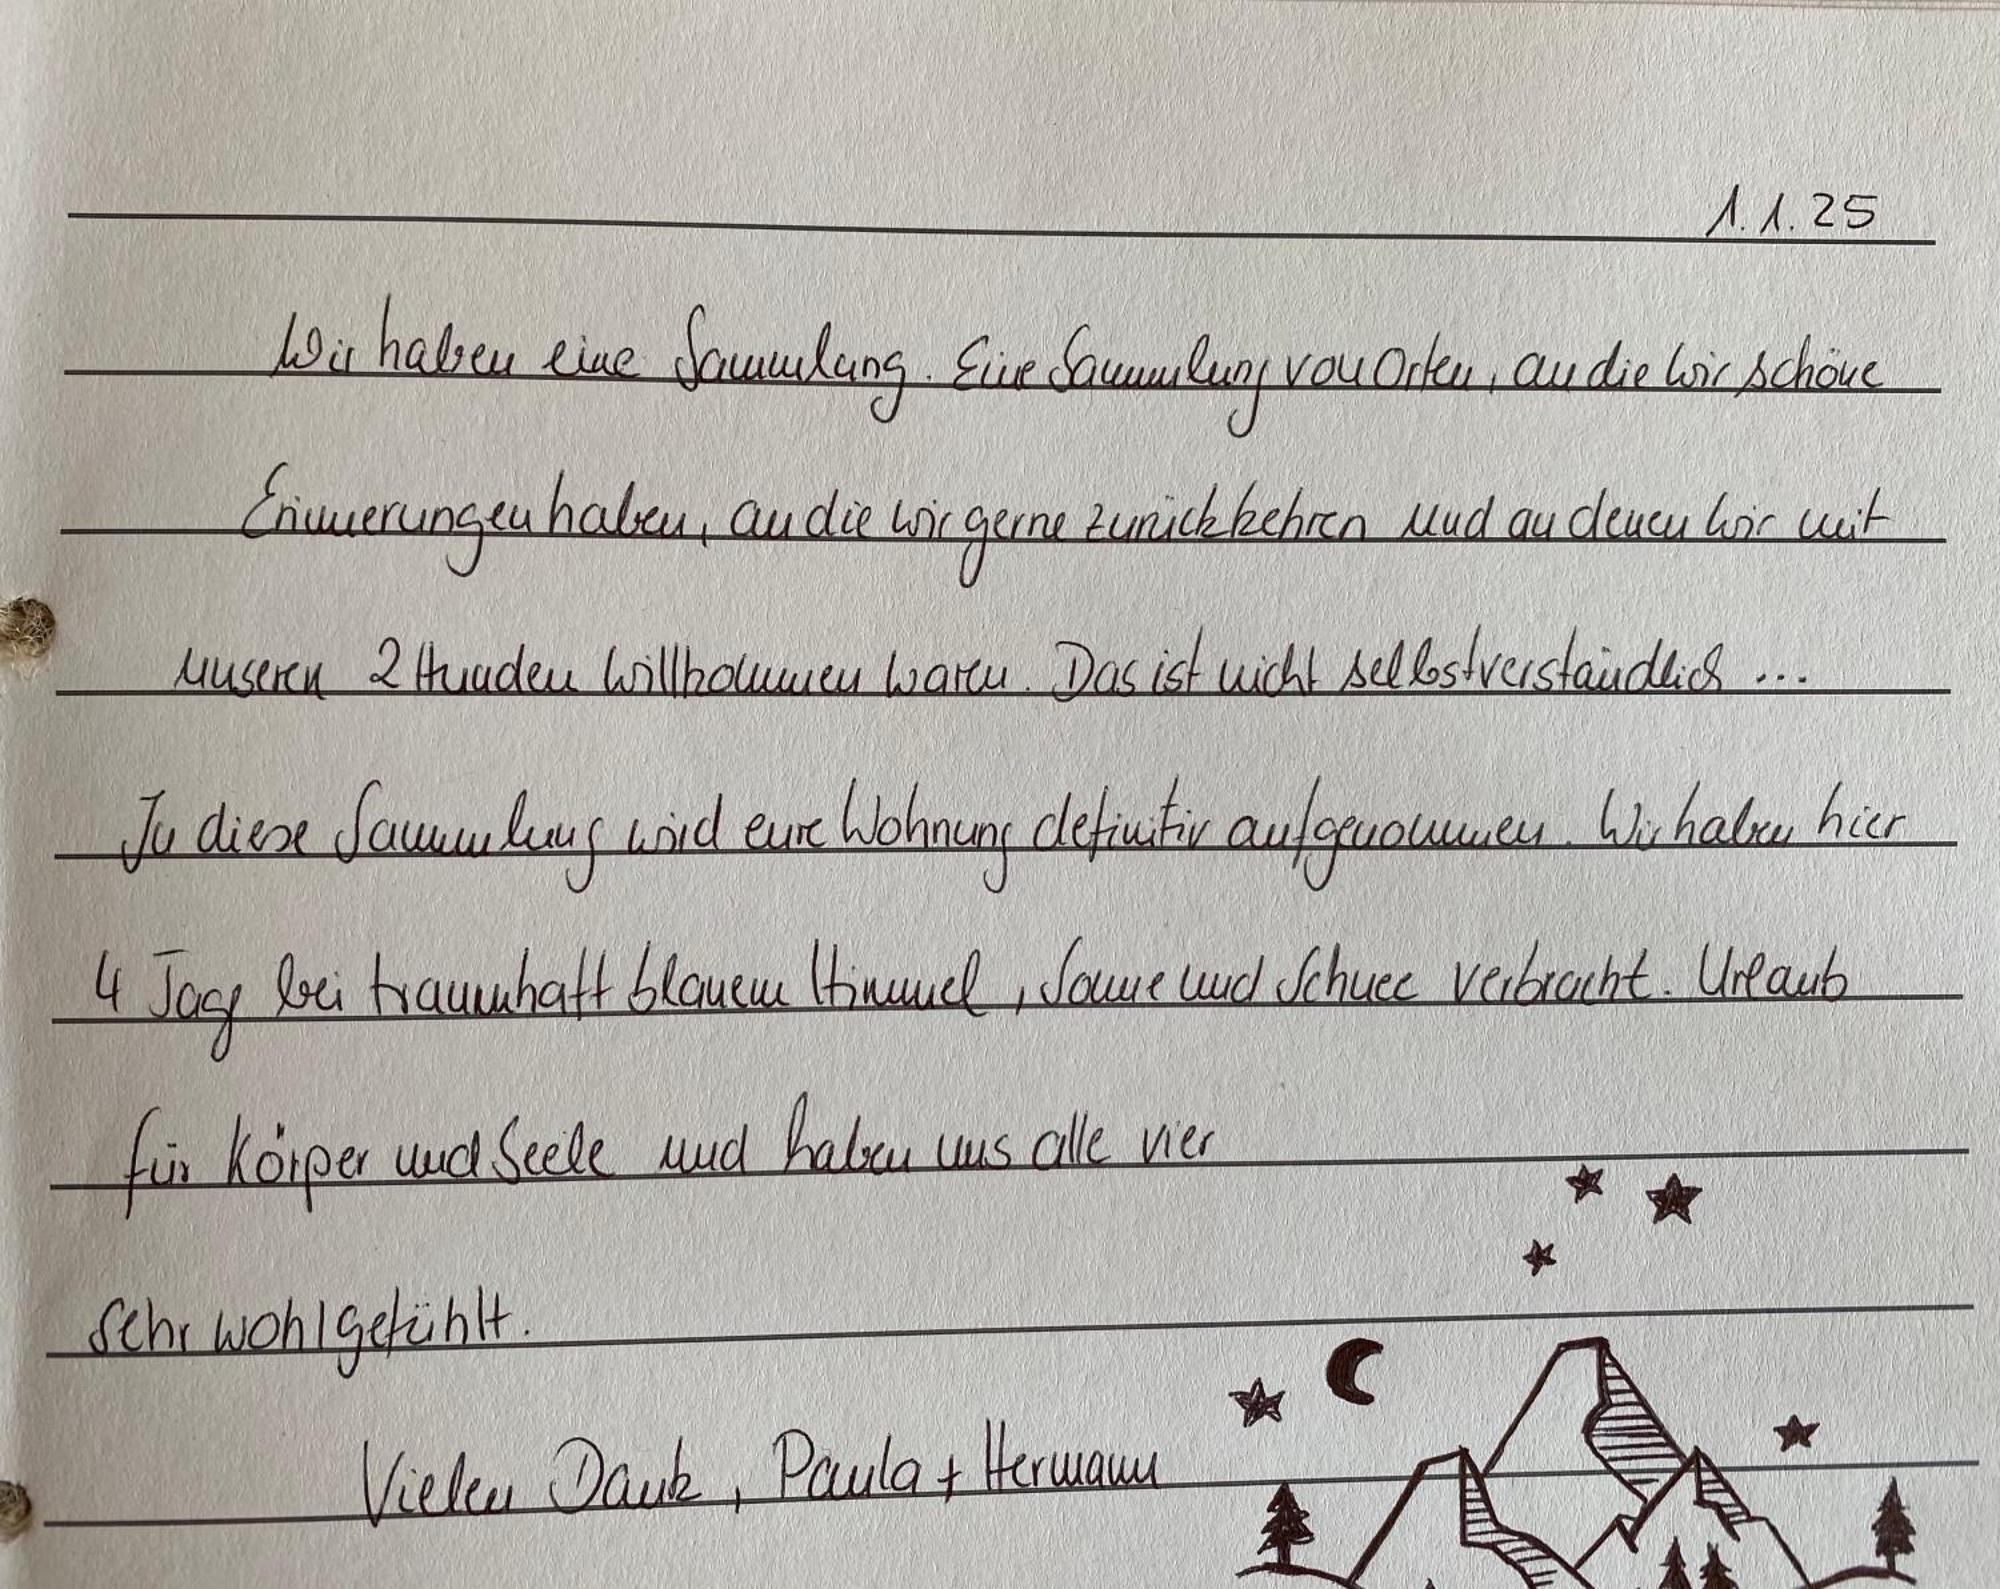 1.1.25
Wir haben eine Sammlung. Eine Sammlung von Orten, an die wir schöne
Erinnerungen haben, an die wir gerne zurückkehren und an denen wir mit
unseren 2 Hunden willkommen waren. Das ist nicht selbstverständlich ...
In diese Sammlung wird eure Wohnung definitiv aufgenommen. Wir haben hier
4 Tage bei traumhaft blauem Himmel, Sonne und Schnee verbracht. Urlaub
für Körper und Seele und haben uns alle vier
sehr wohlgefühlt.
Vielen Dank, Paula + Hermann